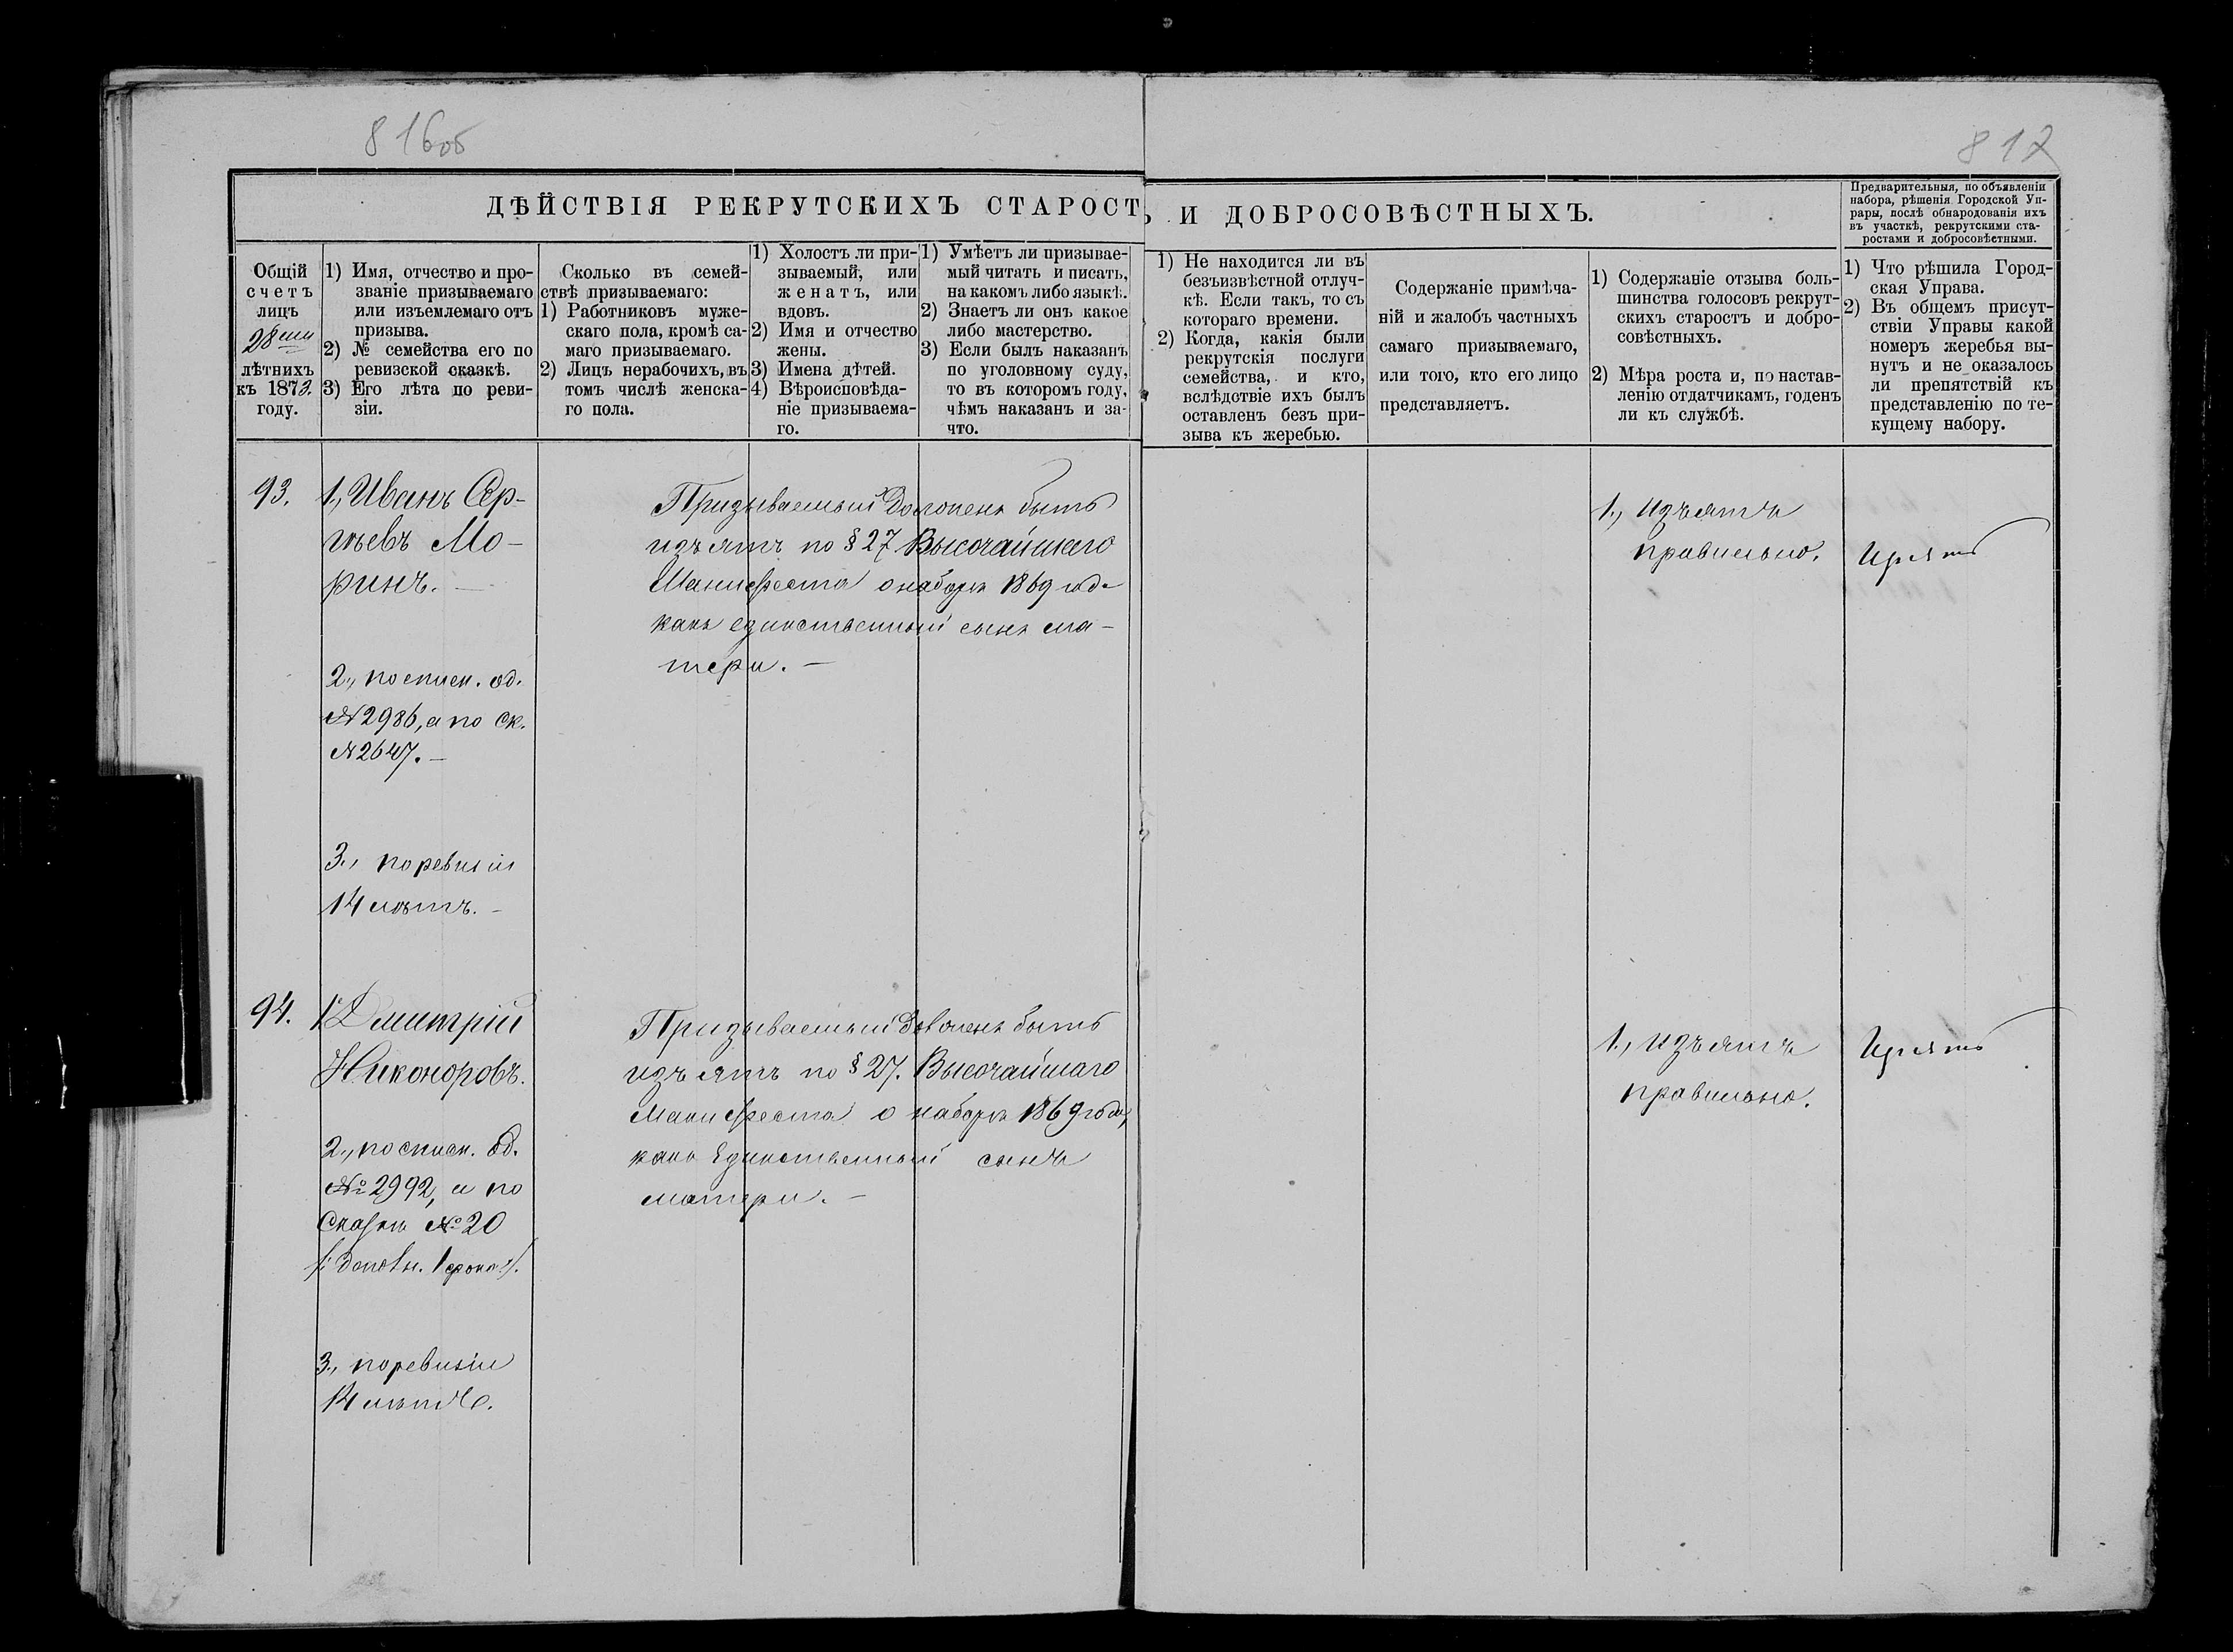 816об
817
ДѢЙСТВІЯ РЕКРУТСКИХЪ СТАРОСТЪ И ДОБРОСОВѢСТНЫХЪ.
Предварительныя, по объявленіи
набора, рѣшенія Городской Уп-
равы, послѣ обнародованія ихъ
въ участкѣ, рекрутскими ста-
ростами и добросовѣстными.
Общій
счетъ
лицъ
28ми
лѣтнихъ
къ 1873.
году.
1) Имя, отчество и про-
званіе призываемаго
или изъемлемаго отъ
призыва.
2) № семейства его по
ревизской сказкѣ.
3) Его лѣта по реви-
зіи.
Сколько въ семей-
ствѣ призываемаго:
1) Работниковъ муже-
скаго пола, кромѣ са-
маго призываемаго.
2) Лицъ нерабочихъ, въ
томъ числѣ женска-
го пола.
1) Холостъ ли при-
зываемый, или
женатъ, или
вдовъ.
2) Имя и отчество
жены.
3) Имена дѣтей.
4) Вѣроисповѣда-
ніе призываема-
го.
1) Умѣетъ ли призывае-
мый читать и писать,
на какомъ либо языкѣ.
2) Знаетъ ли онъ какое
либо мастерство.
3) Если былъ наказанъ
по уголовному суду,
то въ которомъ году,
чѣмъ наказанъ и за-
что.
1) Не находится ли въ
безъизвѣстной отлуч-
кѣ. Если такъ, то съ
котораго времени.
2) Когда, какія были
рекрутскія послуги
семейства, и кто,
вслѣдствіе ихъ былъ
оставленъ безъ при-
зыва къ жеребью.
Содержаніе примѣча-
ній и жалобъ частныхъ
самаго призываемаго,
или того, кто его лицо
представляетъ.
1) Содержаніе отзыва боль-
шинства голосовъ рекрут-
скихъ старостъ и добро-
совѣстныхъ.
2) Мѣра роста и, по настав-
ленію отдатчикамъ, годенъ
ли къ службѣ.
1) Что рѣшила Город-
ская Управа.
2) Въ общемъ присут-
ствіи Управы какой
номеръ жеребья вы-
нутъ и не оказалось
ли препятствій къ
представленію по те-
кущему набору.
93.
1., Иванъ Сер-
гѣевъ Мо-
ринъ. —
2., по списк. од.
№ 2986, а по ск.
№ 2647. —
3., по ревизіи
14 лѣтъ. —
Призываемый долженъ быть
изъятъ по § 27 Высочайшаго
Манифеста о наборѣ 1869 года
какъ единственный сынъ ма-
тери. —
1., изъятъ
правильно.
Изъять
94.
1., Дмитрій
Никоноровъ.
2., по списк. од.
№ 2992, а по
Сказкѣ № 20
3., по ревизіи
14 лѣтъ.
Призываемый долженъ быть
изъятъ по § 27. Высочайшаго
Манифеста о наборѣ 1869 года,
какъ единственный сынъ
матери. —
1., изъятъ
правильно.
Изъять